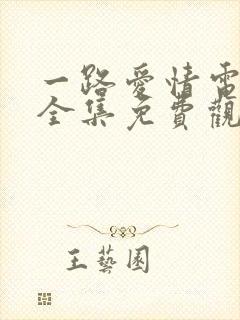 一路愛情電
全集免費觀
王藝園